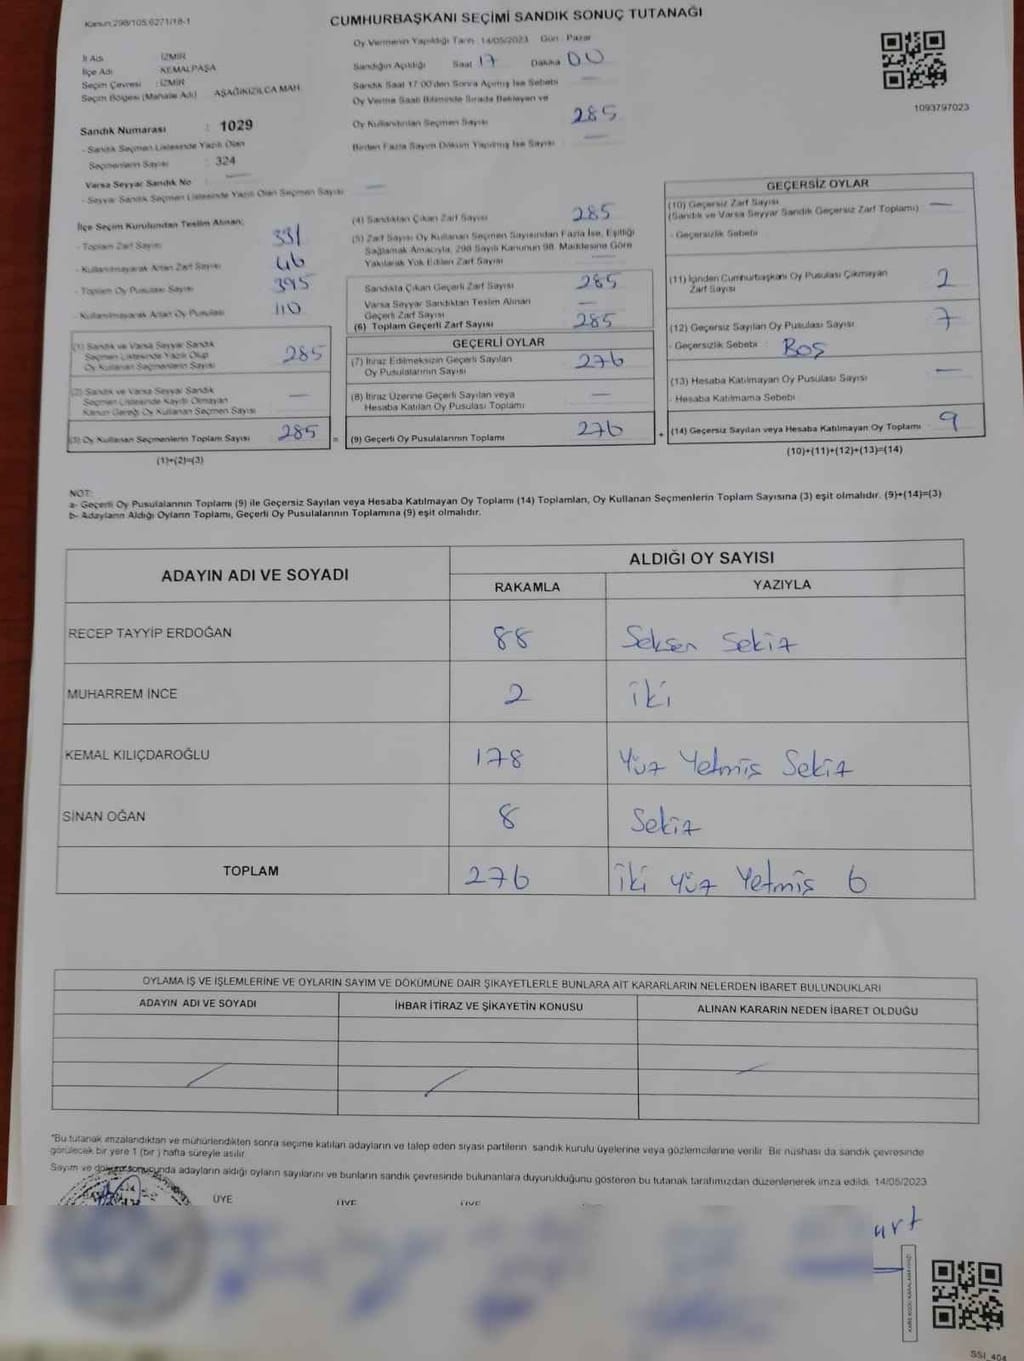 Kanun:298/105,6271/18-1
CUMHURBAŞKANI SEÇİMİ SANDIK SONUÇ TUTANAĞI
Oy Vermenin Yapıldığı Tarih :14/05/2023 Gün : Pazar
İl Adı : İZMİR
İlçe Adı : KEMALPAŞA
Seçim Çevresi : İZMİR
Seçim Bölgesi (Mahalle Adı) AŞAĞIKIZILCA MAH
Sandığın Açıldığı Saat 17 Dakika 00
Sandık Saat 17:00'den Sonra Açılmış İse Sebebi
Oy Verme Saati Bitiminde Sırada Bekleyen ve
Oy Kullandırılan Seçmen Sayısı 285
Birden Fazla Sayım Döküm Yapılmış İse Sayısı
1093797023
Sandık Numarası : 1029
- Sandık Seçmen Listesinde Yazılı Olan
Seçmenlerin Sayısı : 324
Varsa Seyyar Sandık No
- Seyyar Sandık Seçmen Listesinde Yazılı Olan Seçmen Sayısı
İlçe Seçim Kurulundan Teslim Alınan;
- Toplam Zarf Sayısı 331
- Kullanılmayarak Artan Zarf Sayısı 46
- Toplam Oy Pusulası Sayısı 395
- Kullanılmayarak Artan Oy Pusulası 110
(1) Sandık ve Varsa Seyyar Sandık
Seçmen Listesinde Yazılı Olup
Oy Kullanan Seçmenlerin Sayısı 285
(2) Sandık ve Varsa Seyyar Sandık
Seçmen Listesinde Kayıtlı Olmayan
Kanun Gereği Oy Kullanan Seçmen Sayısı —
(3) Oy Kullanan Seçmenlerin Toplam Sayısı 285 =
(1)+(2)=(3)
(4) Sandıktan Çıkan Zarf Sayısı 285
(5) Zarf Sayısı Oy Kullanan Seçmen Sayısından Fazla İse, Eşitliği
Sağlamak Amacıyla, 298 Sayılı Kanunun 98. Maddesine Göre
Yakılarak Yok Edilen Zarf Sayısı —
Sandıkta Çıkan Geçerli Zarf Sayısı 285
Varsa Seyyar Sandıktan Teslim Alınan
Geçerli Zarf Sayısı —
(6) Toplam Geçerli Zarf Sayısı 285
GEÇERLİ OYLAR
(7) İtiraz Edilmeksizin Geçerli Sayılan
Oy Pusulalarının Sayısı 276
(8) İtiraz Üzerine Geçerli Sayılan veya
Hesaba Katılan Oy Pusulası Toplamı —
(9) Geçerli Oy Pusulalarının Toplamı 276 +
GEÇERSİZ OYLAR
(10) Geçersiz Zarf Sayısı —
(Sandık ve Varsa Seyyar Sandık Geçersiz Zarf Toplamı)
- Geçersizlik Sebebi
(11) İçinden Cumhurbaşkanı Oy Pusulası Çıkmayan
Zarf Sayısı 2
(12) Geçersiz Sayılan Oy Pusulası Sayısı 7
- Geçersizlik Sebebi : BOŞ
(13) Hesaba Katılmayan Oy Pusulası Sayısı —
- Hesaba Katılmama Sebebi
(14) Geçersiz Sayılan veya Hesaba Katılmayan Oy Toplamı 9
(10)+(11)+(12)+(13)=(14)
NOT:
a- Geçerli Oy Pusulalarının Toplamı (9) ile Geçersiz Sayılan veya Hesaba Katılmayan Oy Toplamı (14) Toplamları, Oy Kullanan Seçmenlerin Toplam Sayısına (3) eşit olmalıdır. (9)+(14)=(3)
b- Adayların Aldığı Oyların Toplamı, Geçerli Oy Pusulalarının Toplamına (9) eşit olmalıdır.
ADAYIN ADI VE SOYADI ALDIĞI OY SAYISI
RAKAMLA YAZIYLA
RECEP TAYYİP ERDOĞAN 88 Seksen Sekiz
MUHARREM İNCE 2 iki
KEMAL KILIÇDAROĞLU 178 Yüz Yetmiş Sekiz
SİNAN OĞAN 8 Sekiz
TOPLAM 276 İki Yüz Yetmiş 6
OYLAMA İŞ VE İŞLEMLERİNE VE OYLARIN SAYIM VE DÖKÜMÜNE DAİR ŞİKAYETLERLE BUNLARA AİT KARARLARIN NELERDEN İBARET BULUNDUKLARI
ADAYIN ADI VE SOYADI İHBAR İTİRAZ VE ŞİKAYETİN KONUSU ALINAN KARARIN NEDEN İBARET OLDUĞU
*Bu tutanak imzalandıktan ve mühürlendikten sonra seçime katılan adayların ve talep eden siyasi partilerin sandık kurulu üyelerine veya gözlemcilerine verilir. Bir nüshası da sandık çevresinde
görülecek bir yere 1 (bir) hafta süreyle asılır.
Sayım ve döküm sonucunda adayların aldığı oyların sayılarını ve bunların sandık çevresinde bulunanlara duyurulduğunu gösteren bu tutanak tarafımızdan düzenlenerek imza edildi. 14/05/2023
ÜYE ÜYE ÜYE
urt
SSI_404